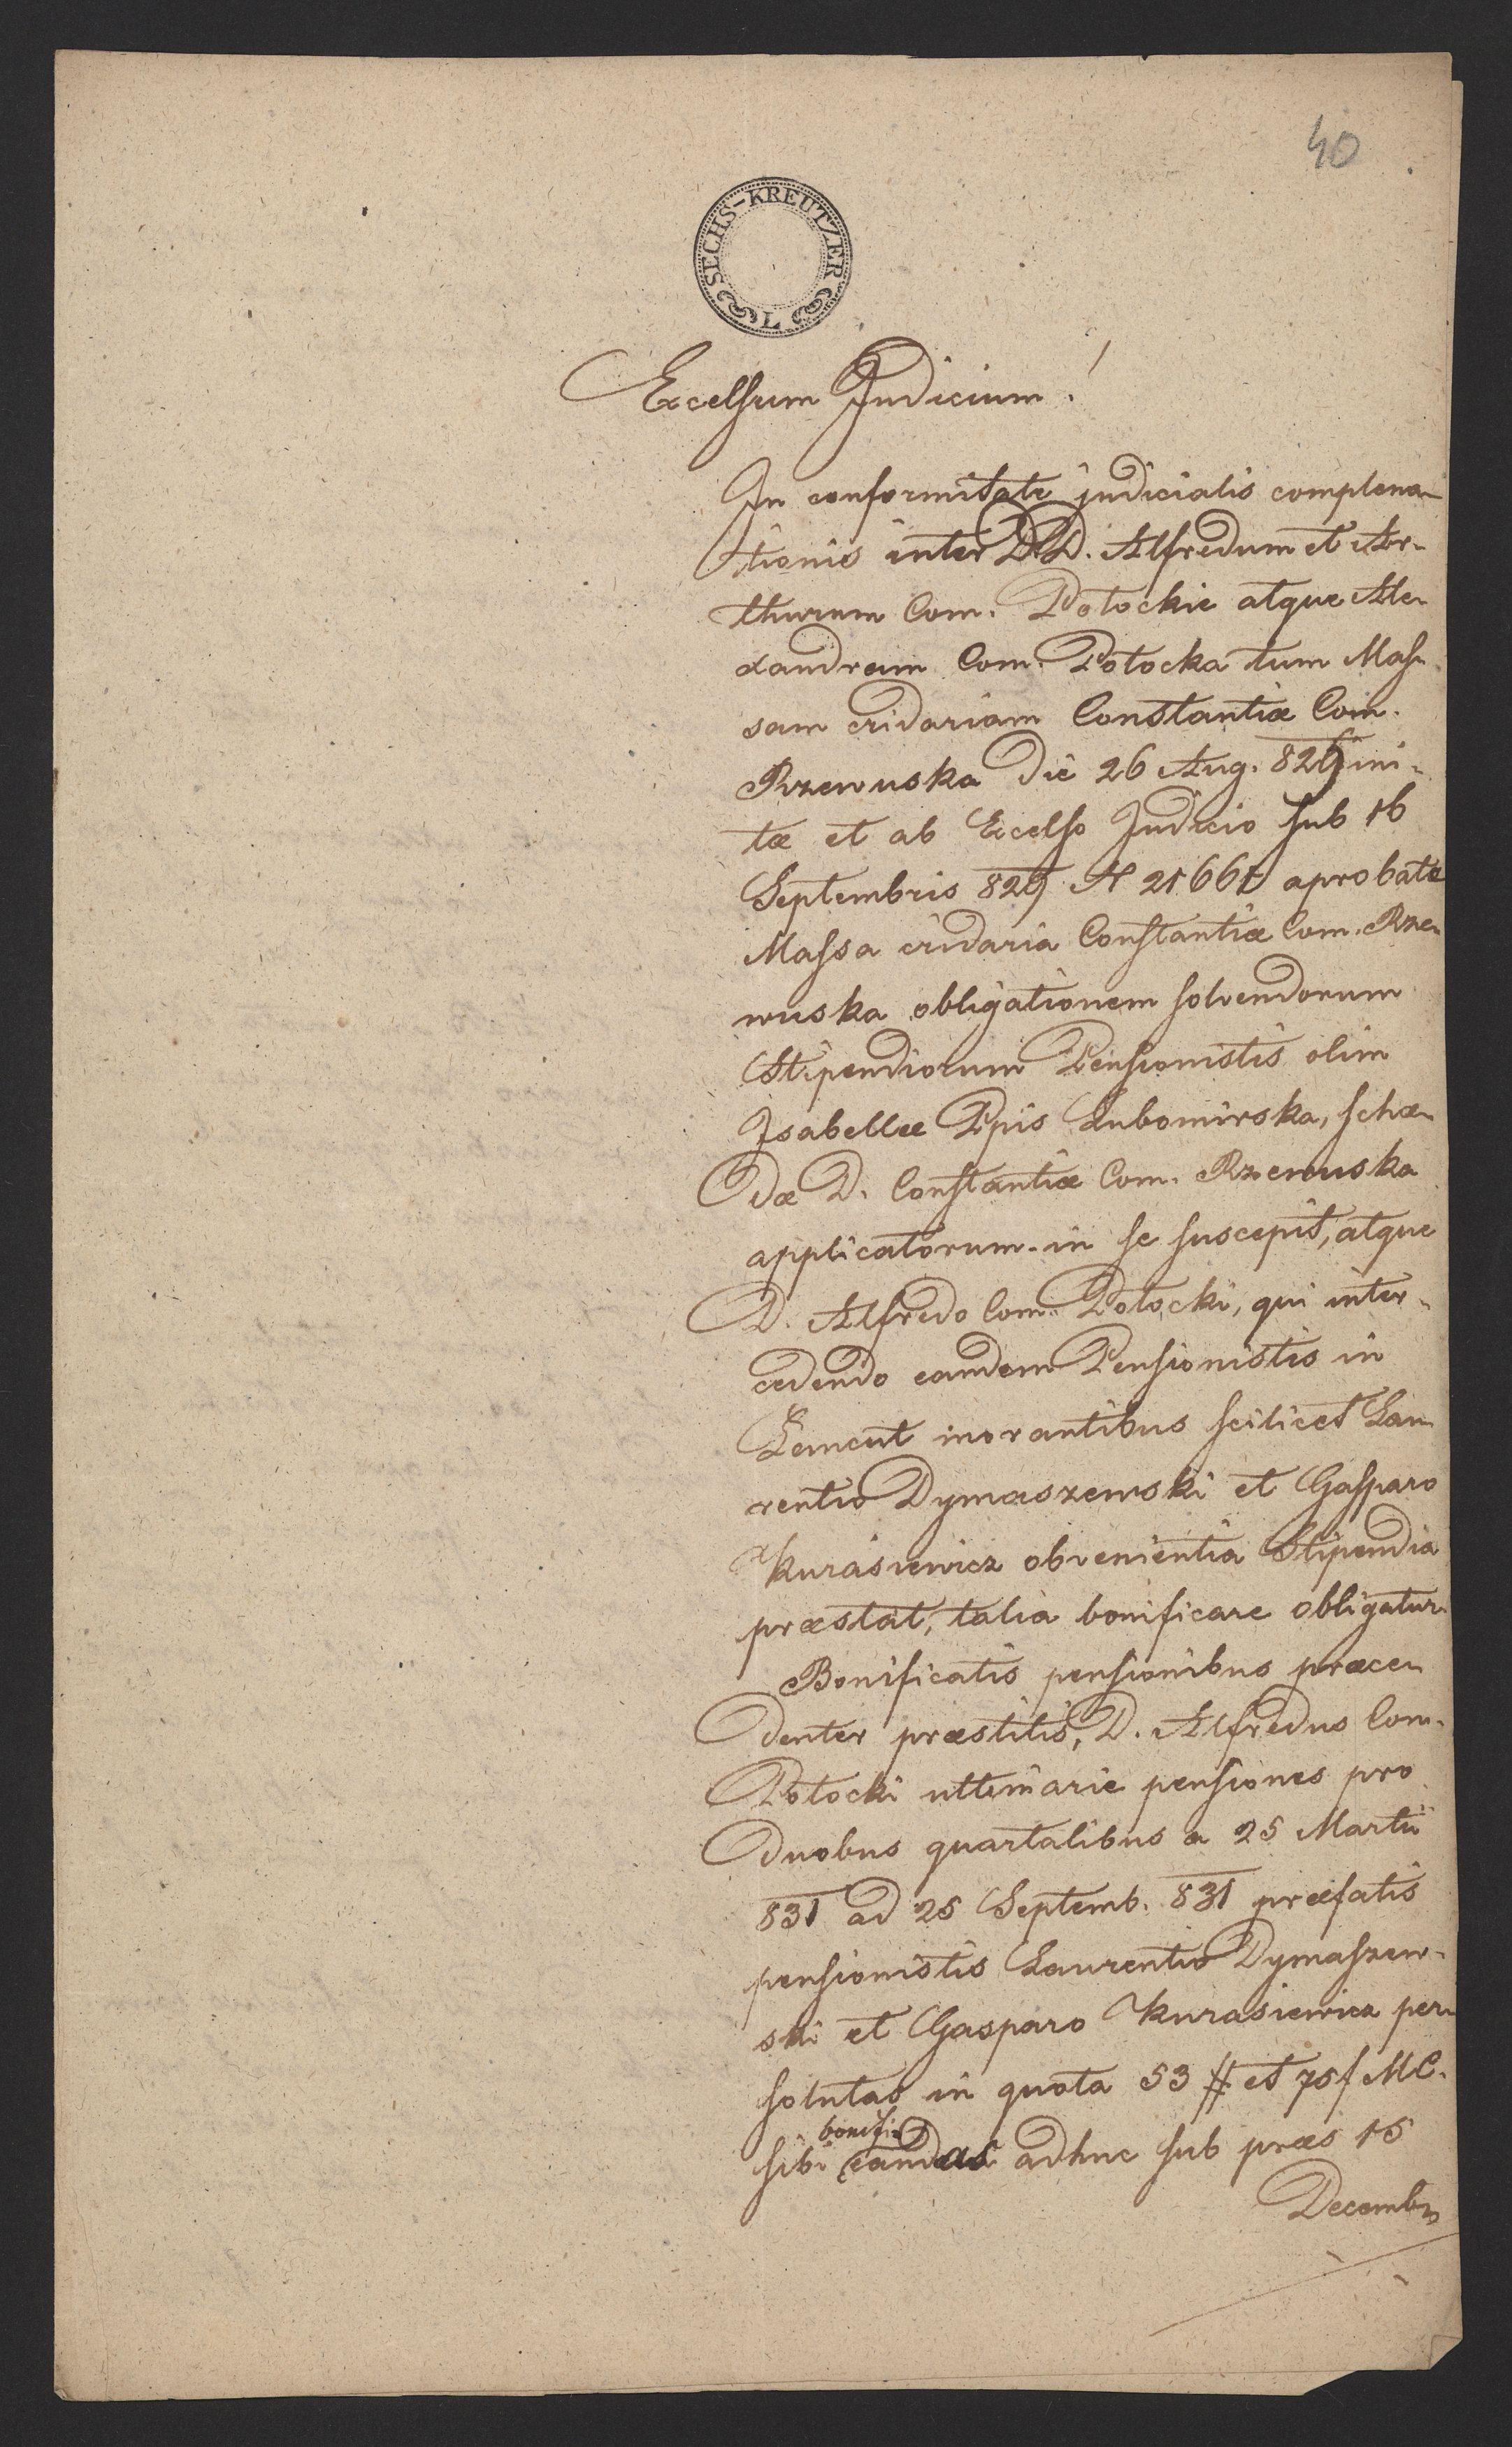 40
SECHS-KREUTZER
L
Excelsum Judicium!
In conformitate judicialis complana-
tionis inter DD. Alfredum et Ar-
thurum Com. Potockie atque Ale-
xandram Com. Potocka tum Mas-
sam cridariam Constantiæ Com.
Rzewuska die 26 Aug. 829 ini-
tæ et ab Excelso Judicio sub 16
Septembris 829 N 21661 aprobatæ
Massa cridaria Constantiæ Com. Rze-
wuska obligationem solvendorum
Stipendiorum Pensionistis olim
Isabellæ Ppis Lubomirska, schæ-
dæ D. Constantiæ Com. Rzewuska
applicatorum in se suscepit, atque
D. Alfredo Com. Potocki, qui inter-
cedendo eandem Pensionistis in
Łancut morantibus scilicet Lau-
rentio Dymaszewski et Gasparo
Kurasiewicz obvenientia Stipendia
præstat, talia bonificare obligatur.
Bonificatis pensionibus præce-
denter præstitis, D. Alfredus Com.
Potocki ultimarie pensiones pro
duobus quartalibus a 25 Martii
831 ad 25 Septemb. 831 præfatis
pensionistis Laurentio Dymaszew-
ski et Gasparo Kurasiewicz per-
solutas in quota 53 # et 75 f MC.
sibi bonificandas adhuc sub præs 15
Decembris